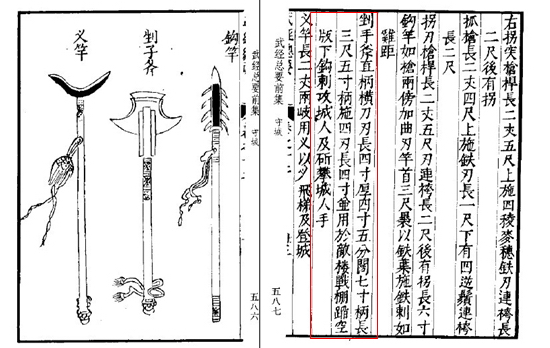 右拐突槍桿長二丈五尺上施四稜麥穗鐵刃連袴長
二尺後有拐
抓槍長二丈四尺上施鐵刃長一尺下有四逆鬚連袴
長二尺
拐刃槍桿長二丈五尺刃連袴長二尺後有拐長六寸
鈎竿如槍兩傍加曲刃竿首三尺裹以鐵葉施鐵刺如
雞距
剉手斧直柄橫刃刃長四寸厚四寸五分闊七寸柄長
三尺五寸柄施四刃長四寸並用於敵樓戰棚蹋空
版下鈎刺攻城人及斫攀城人手
义竿長二丈兩歧用义以义飛梯及登城
武经总要前集 守城
五八七
武经总要前集 守城
五八六
鈎竿
剉子斧
义竿